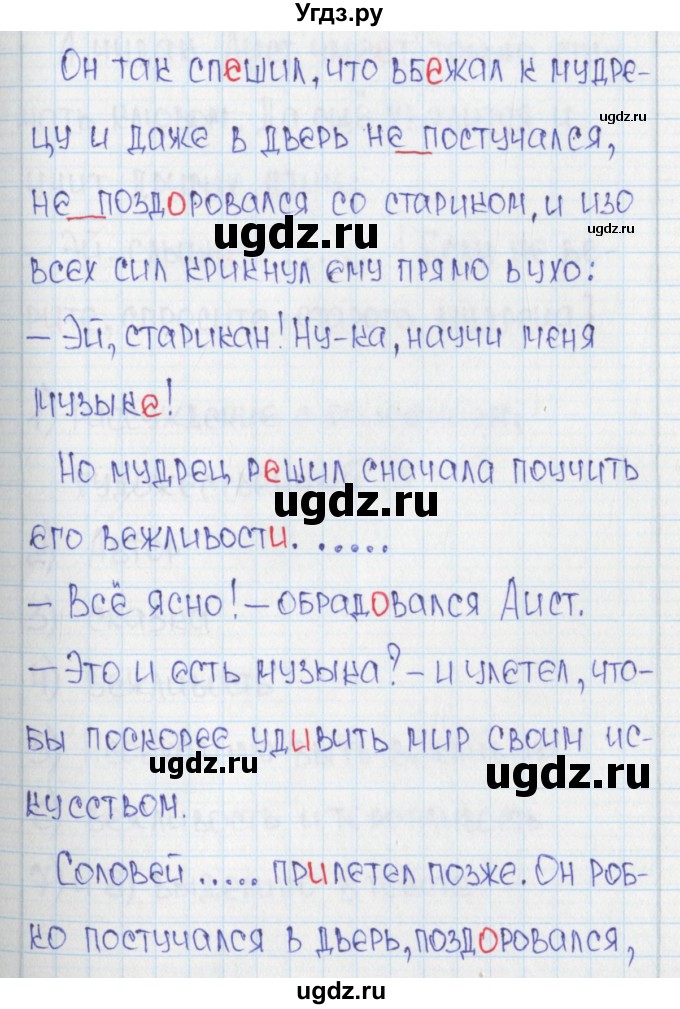 Угдз.ру
Он так спешил, что вбежал к мудре-
ugdz.ru
цу и даже в дверь не постучался,
ugdz.ru
не поздоровался со стариком, и изо
ugdz.ru
ugdz.ru
всех сил крикнул ему прямо в ухо:
– Эй, старикан! Ну-ка, научи меня
музыке!
Но мудрец решил сначала поучить
ugdz.ru
его вежливости. .....
– Всё ясно! – обрадовался Аист.
– Это и есть музыка? – и улетел, что-
бы поскорее удивить мир своим ис-
ugdz.ru
ugdz.ru
кусством.
Соловей ..... прилетел позже. Он роб-
ко постучался в дверь, поздоровался,
ugdz.ru